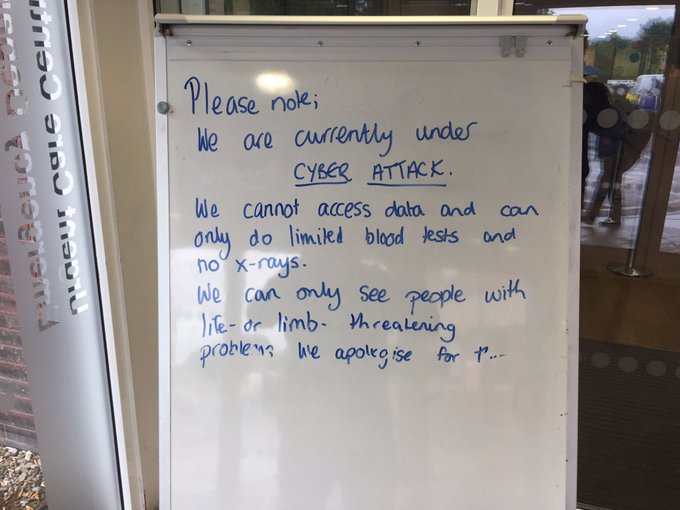 Please note;
We are currently under
CYBER ATTACK.
We cannot access data and can
only do limited blood tests and
no x-rays.
We can only see people with
life- or limb- threatening
problems We apologise for
Emergency
Urgent Care Centr